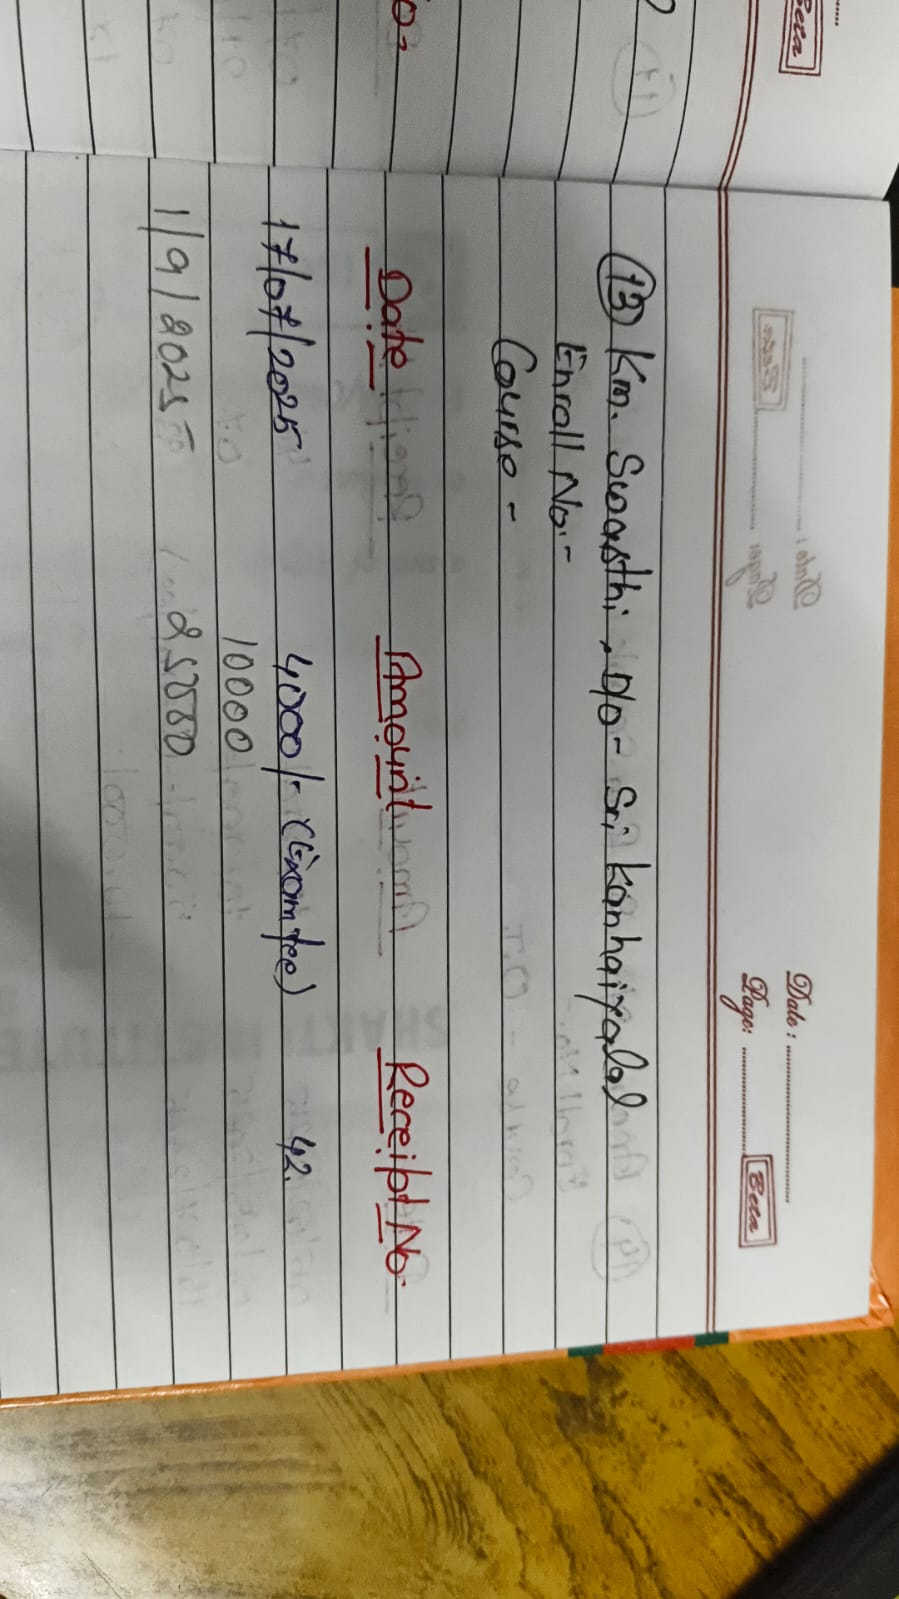 Date :
Page:
Beta
(13) Km. Swasthi, D/o - Sri Kanhaiyalal
Enroll No:-
Course -
Date Amount Receipt No.
17/07/2025 4000/- (Exam fee) 42.
10000
1/9/2025 25000
Beta